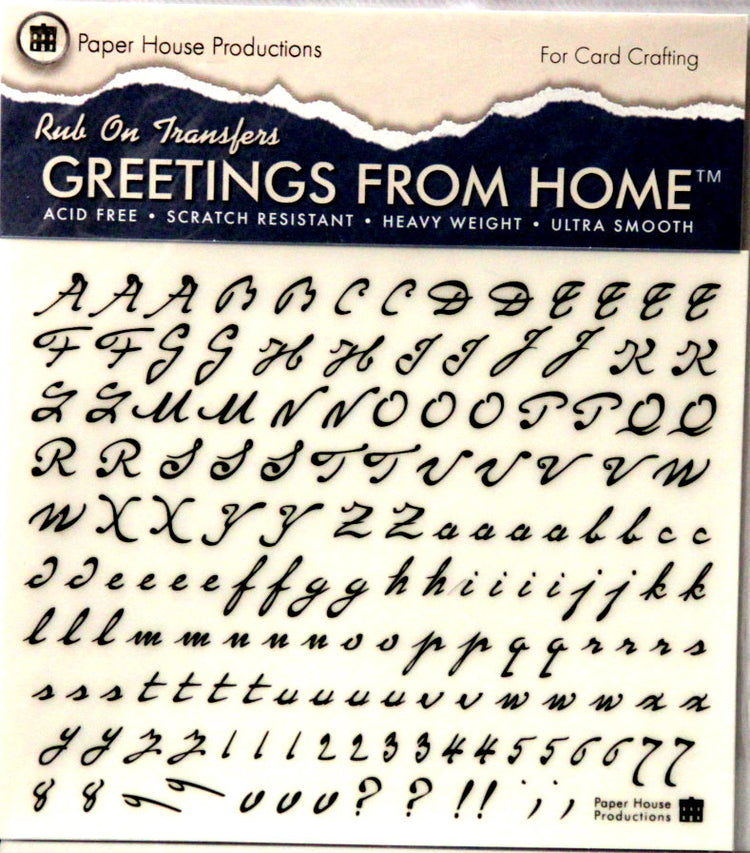 Paper House Productions
For Card Crafting
Rub On Transfers
GREETINGS FROM HOME™
ACID FREE • SCRATCH RESISTANT • HEAVY WEIGHT • ULTRA SMOOTH
A A A B B C C D D E E E E
F F G G H H I I J J K K
L L M M N N O O O P P Q Q
R R S S S T T U U V V W
W X X Y Y Z Z a a a a b b c c
d d e e e e f f g g h h i i i i j j k k
l l l m m n n n o o p p q q r r r s
s s s t t t t u u u u v v w w w x x
y y z z 1 1 1 2 2 3 3 4 4 5 5 6 6 7 7
8 8 9 9 0 0 0 ? ? ! ! ' ; , ,
Paper House
Productions